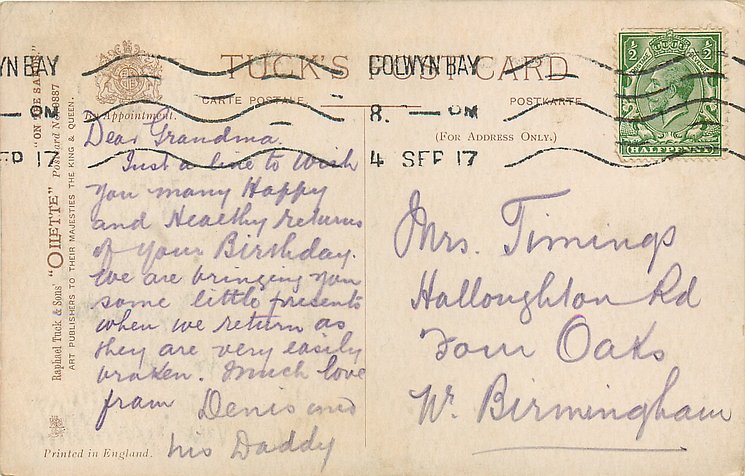 TUCK'S POST CARD
CARTE POSTALE
POSTKARTE
By Appointment.
(FOR ADDRESS ONLY.)
COLWYN BAY
8. — PM
4 SEP 17
YN BAY
PM
EP 17
½ ½
HALFPENNY
"ON THE SANDS."
Raphael Tuck & Sons' "OILETTE" Postcard No.
ART PUBLISHERS TO THEIR MAJESTIES THE KING & QUEEN.
Dear Grandma.
Just a line to wish
you many Happy
and Healthy returns
of your Birthday.
We are bringing you
some little presents
when we return as
they are very easily
broken. Much love
from Denis and
his Daddy
Printed in England.
Mrs. Timings
Halloughton Rd
Four Oaks
Nr. Birmingham